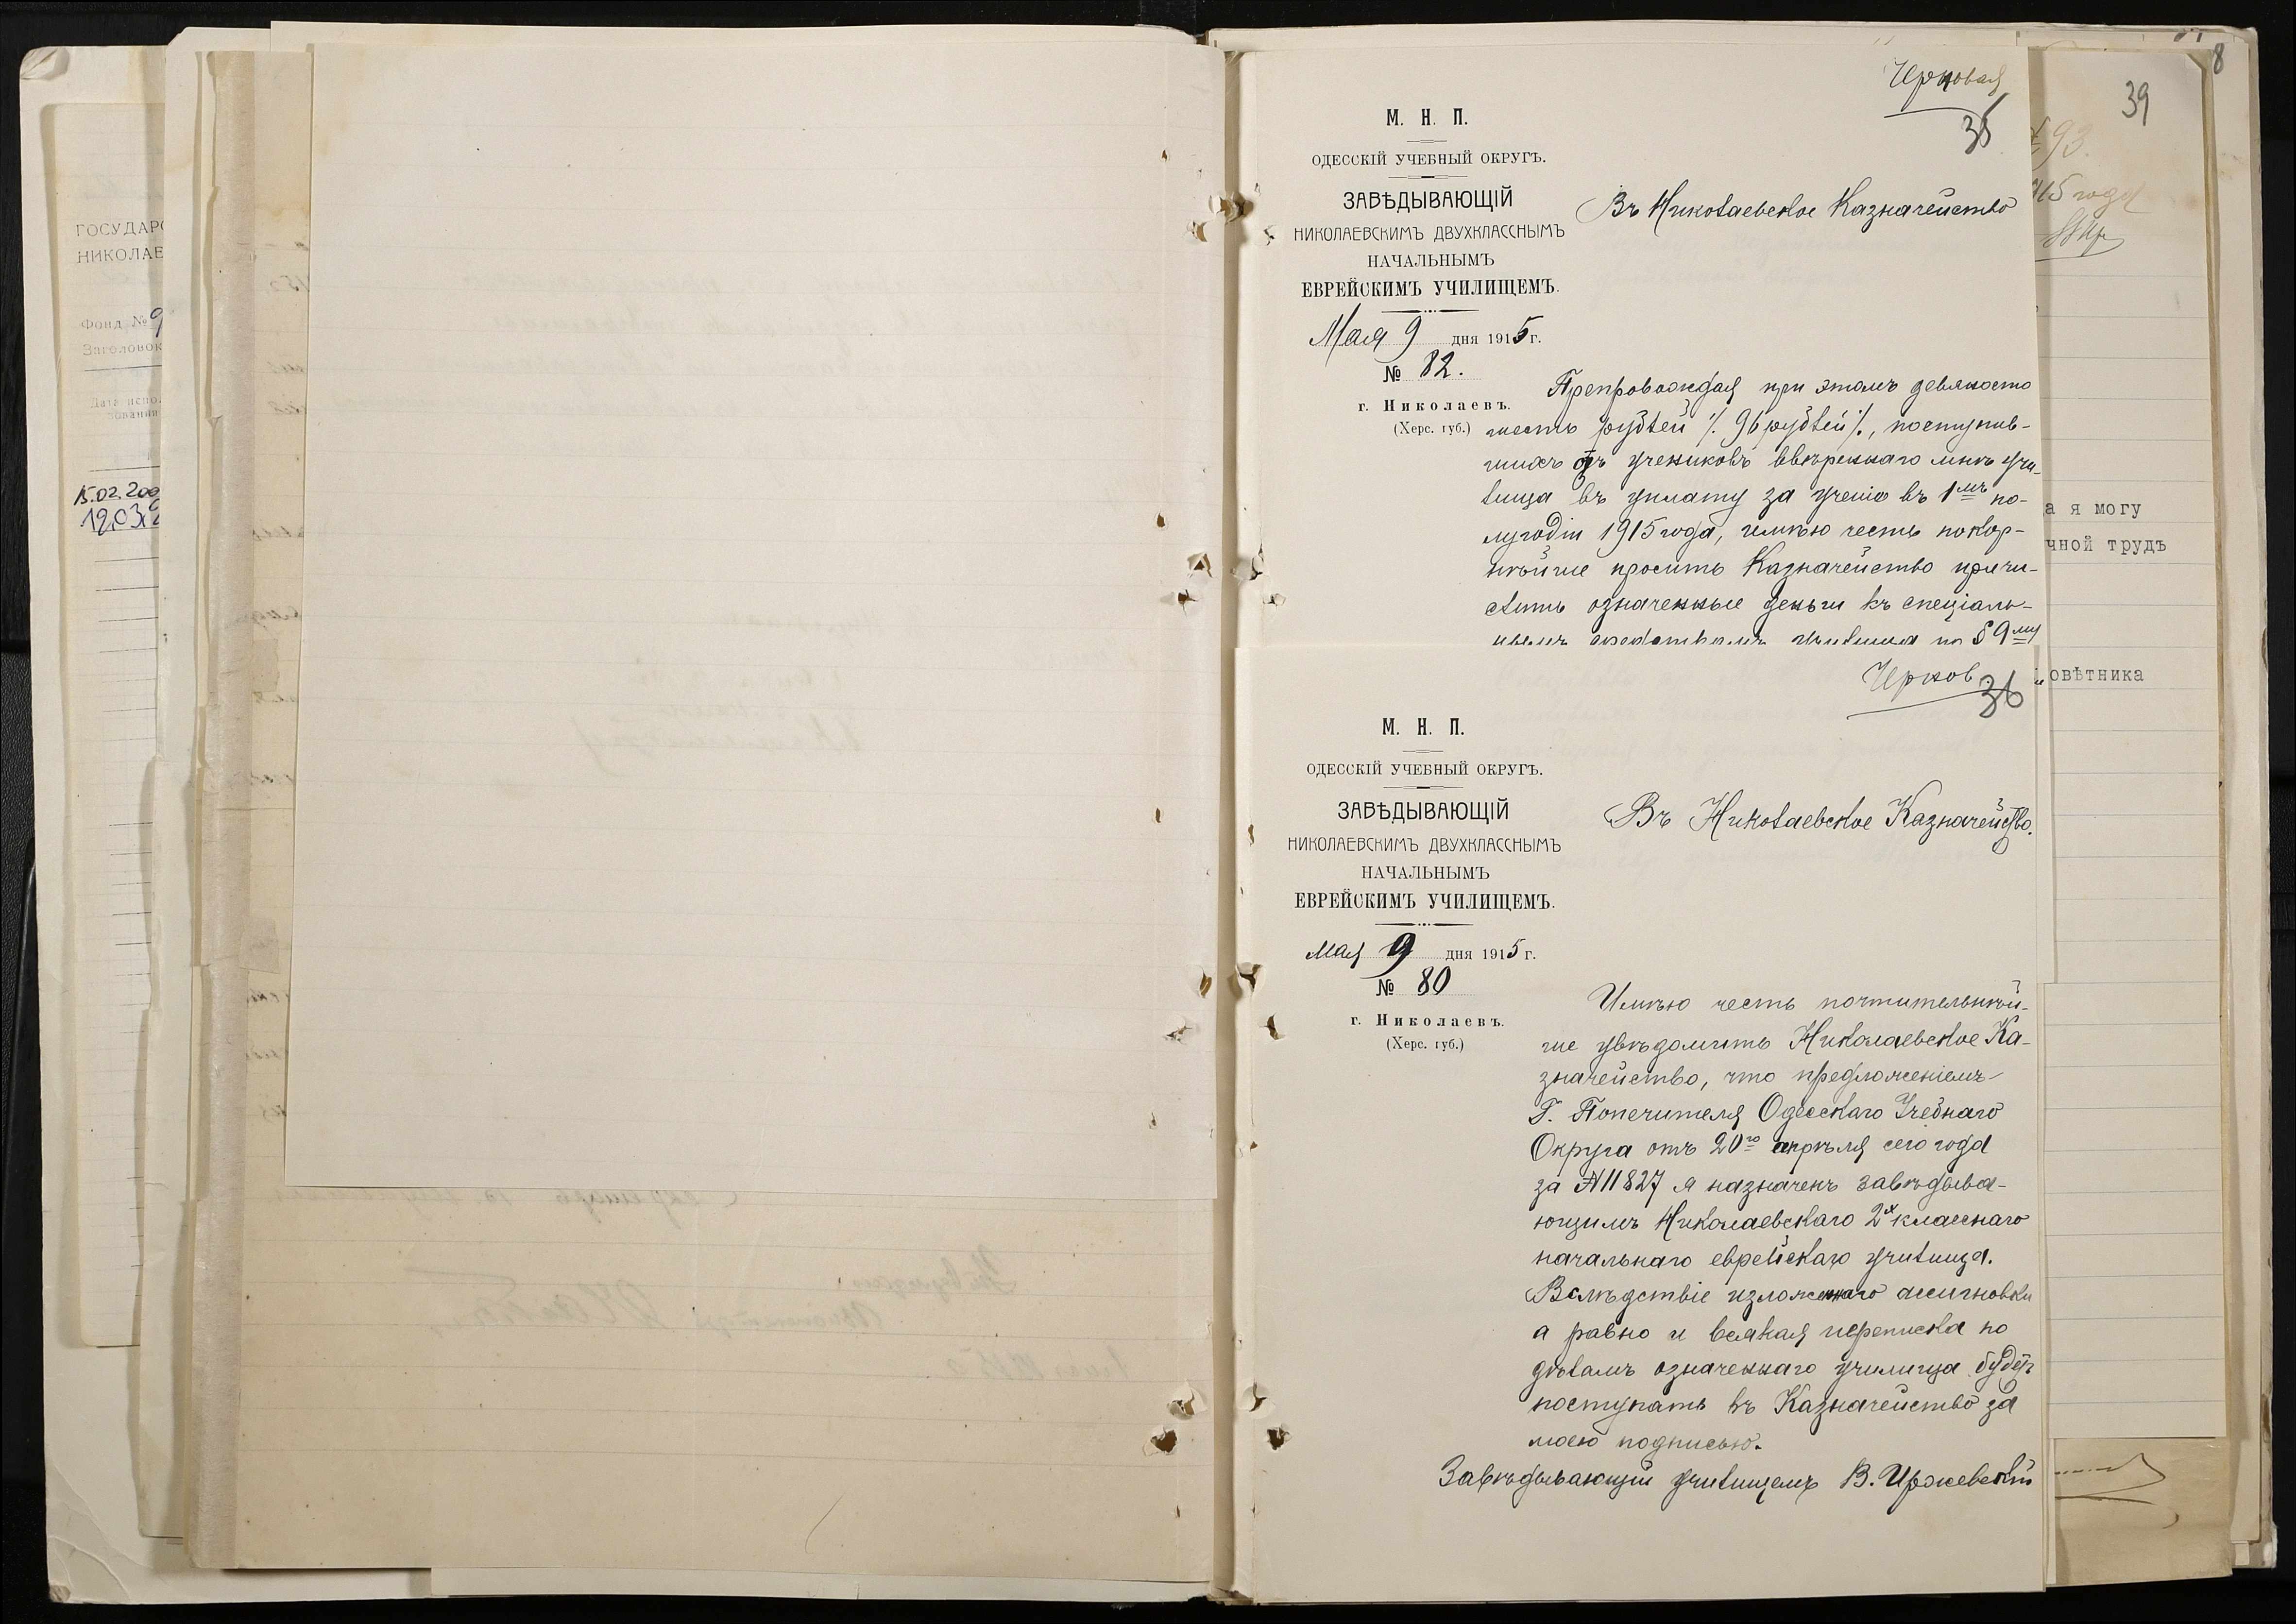 ГОСУДАР
НИКОЛАЕ
Фонд № 9
Заголовок
Дата испо
зования
15.02.200
12.03.
39
8
93.
915 года
а я могу
чной трудъ
овѣтника
Черновая
35
М. Н. П.
ОДЕССКІЙ УЧЕБНЫЙ ОКРУГЪ.
ЗАВѢДЫВАЮЩІЙ
НИКОЛАЕВСКИМЪ ДВУХКЛАССНЫМЪ
НАЧАЛЬНЫМЪ
ЕВРЕЙСКИМЪ УЧИЛИЩЕМЪ.
Мая 9 дня 1915 г.
№ 82.
г. Николаевъ.
(Херс. губ.)
Въ Николаевское Казначейство
Препровождая при этомъ девяносто
шесть рублей ·/. 96 рублей ·/., поступив-
шихъ отъ учениковъ ввѣреннаго мнѣ учи-
лища въ уплату за ученіе въ 1мъ по-
лугодіи 1915 года, имѣю честь покор-
нѣйше просить Казначейство причи-
слить означенныя деньги къ спеціаль-
нымъ средствамъ училища по § 9му
Чернов.
36
М. Н. П.
ОДЕССКІЙ УЧЕБНЫЙ ОКРУГЪ.
ЗАВѢДЫВАЮЩІЙ
НИКОЛАЕВСКИМЪ ДВУХКЛАССНЫМЪ
НАЧАЛЬНЫМЪ
ЕВРЕЙСКИМЪ УЧИЛИЩЕМЪ.
Мая 9 дня 1915 г.
№ 80
г. Николаевъ.
(Херс. губ.)
Въ Николаевское Казначейство.
Имѣю честь почтительнѣй-
ше увѣдомить Николаевское Ка-
значейство, что предложеніемъ
Г. Попечителя Одесскаго Учебнаго
Округа отъ 20го апрѣля сего года
за №11827 я назначенъ завѣдыва-
ющимъ Николаевскаго 2х класснаго
начальнаго еврейскаго училища.
Вслѣдствіе изложеннаго ассигновки
а равно и всякая переписка по
дѣламъ означеннаго училища будутъ
поступать въ Казначейство за
моею подписью.
Завѣдывающій училищемъ В. Иржевскій